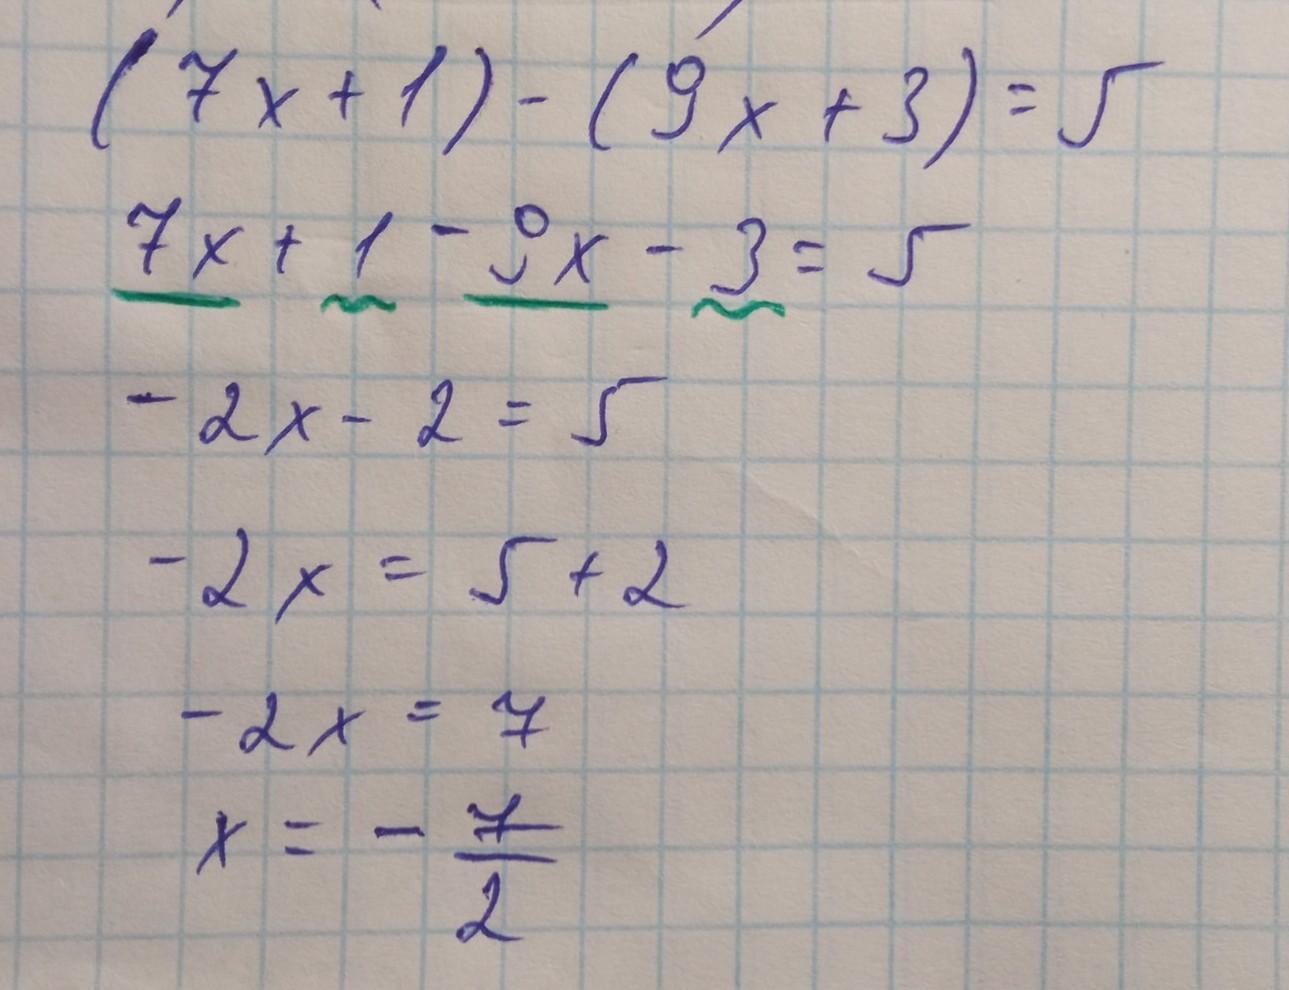 (7x+1)-(9x+3)=5
7x+1-9x-3=5
-2x-2=5
-2x=5+2
-2x=7
x=-7/2